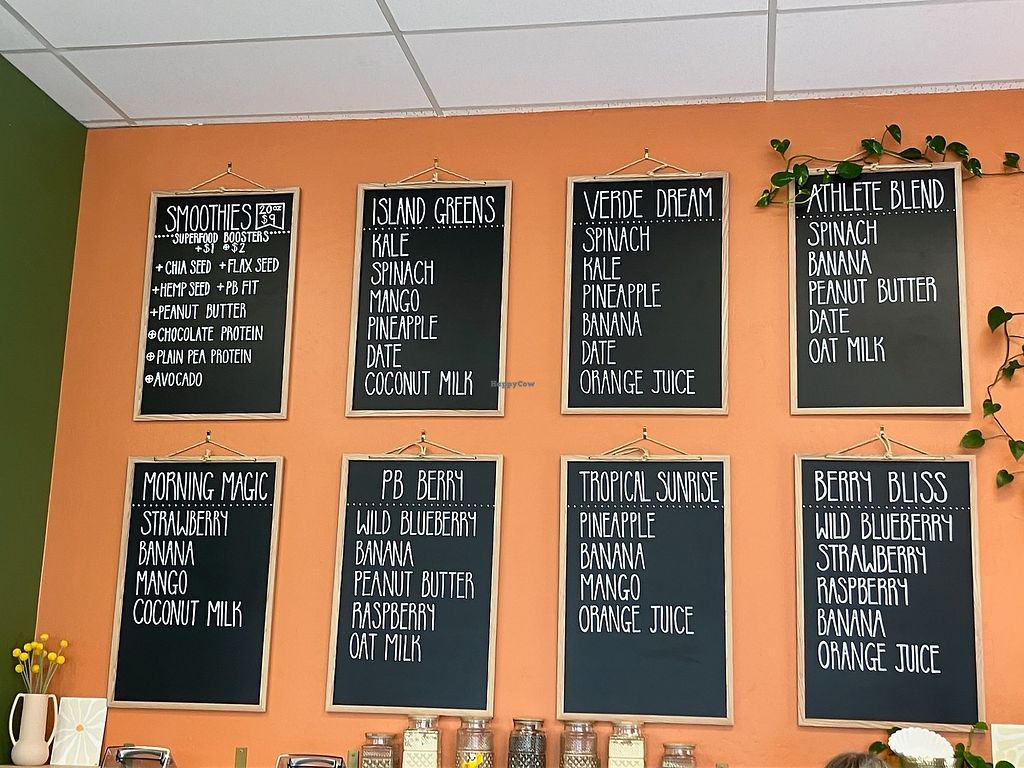 SMOOTHIES 20oz $9
SUPERFOOD BOOSTERS
+$1 ⊕$2
+CHIA SEED +FLAX SEED
+HEMP SEED +PB FIT
+PEANUT BUTTER
⊕CHOCOLATE PROTEIN
⊕PLAIN PEA PROTEIN
⊕AVOCADO
ISLAND GREENS
KALE
SPINACH
MANGO
PINEAPPLE
DATE
COCONUT MILK
VERDE DREAM
SPINACH
KALE
PINEAPPLE
BANANA
DATE
ORANGE JUICE
ATHLETE BLEND
SPINACH
BANANA
PEANUT BUTTER
DATE
OAT MILK
MORNING MAGIC
STRAWBERRY
BANANA
MANGO
COCONUT MILK
PB BERRY
WILD BLUEBERRY
BANANA
PEANUT BUTTER
RASPBERRY
OAT MILK
TROPICAL SUNRISE
PINEAPPLE
BANANA
MANGO
ORANGE JUICE
BERRY BLISS
WILD BLUEBERRY
STRAWBERRY
RASPBERRY
BANANA
ORANGE JUICE
HappyCow